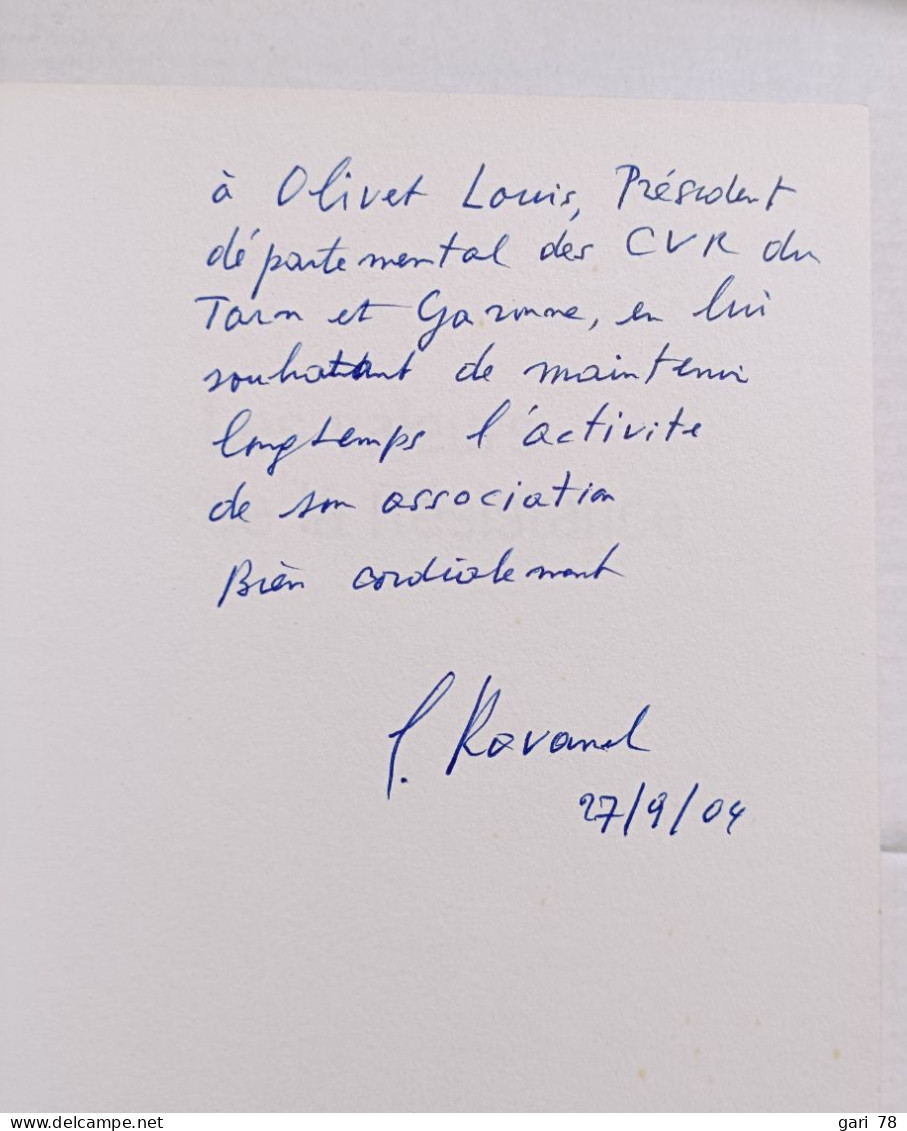 à Olivet Louis, Président
départemental des CVR du
Tarn et Garonne, en lui
souhaitant de maintenir
longtemps l'activité
de son association
Bien cordialement
S. Ravanel
27/9/04
gari 78